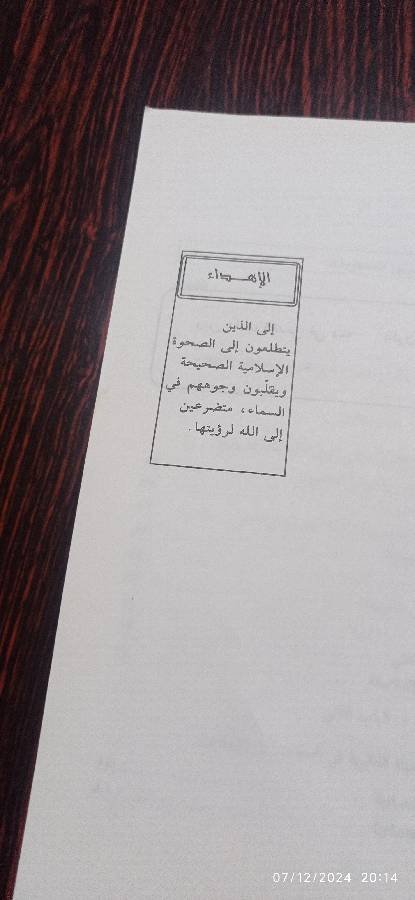 الإهــداء
إلى الذين
يتطلعون إلى الصحوة
الإسلامية الصحيحة
ويقلّبون وجوههم في
السماء، متضرعين
إلى الله لرؤيتها.
07/12/2024 20:14